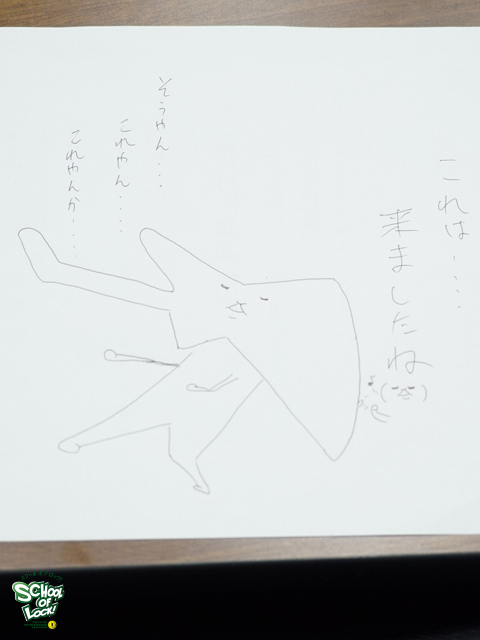 これは....
来ましたね
そうやん...
これやん....
これやんか....
SCHOOL
OF
LOCK!